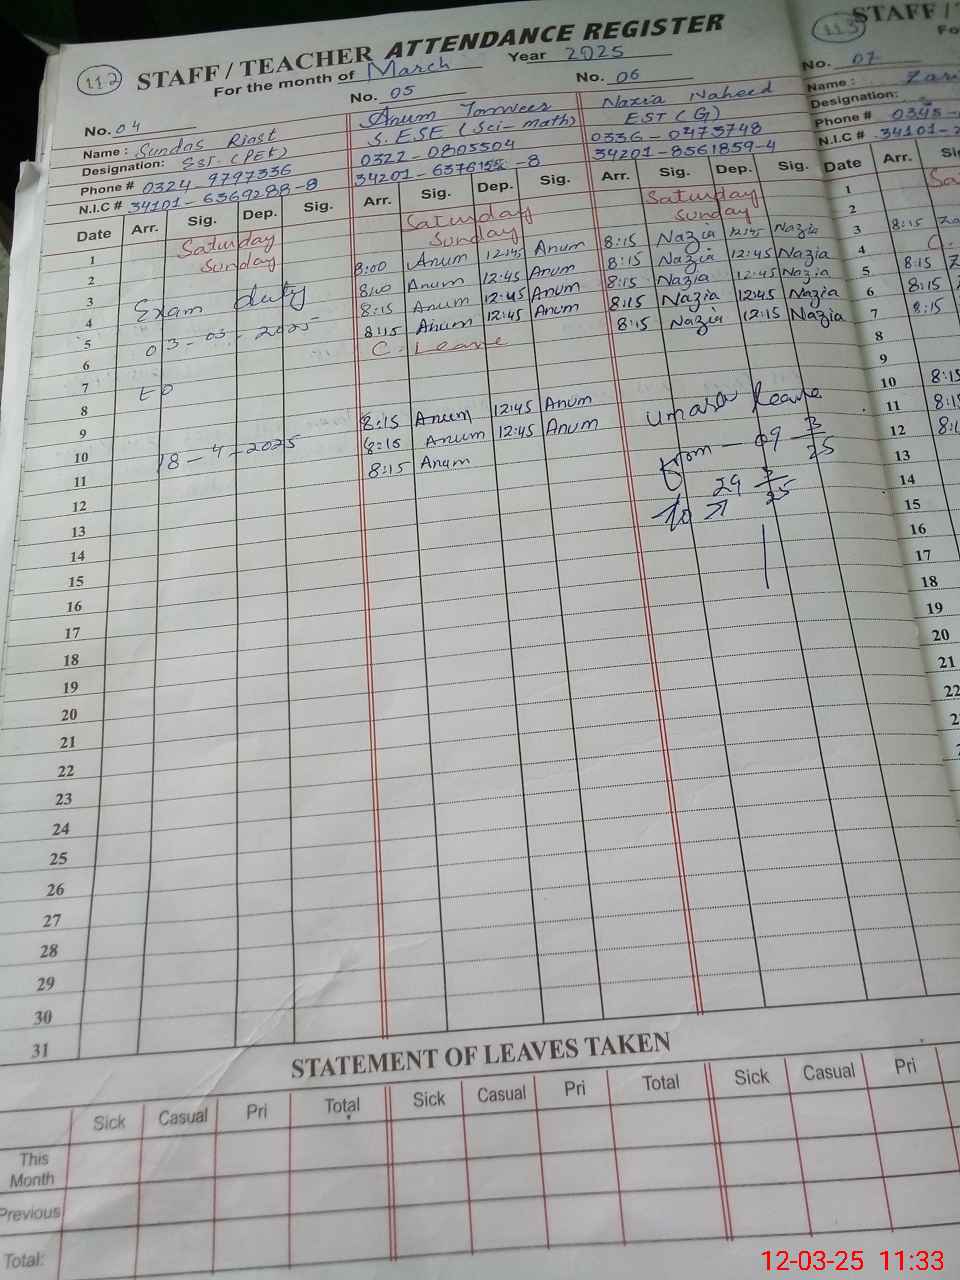 112 STAFF / TEACHER ATTENDANCE REGISTER
For the month of March Year 2025
No. 04
Name : Sundas Riast
Designation: SST (PET)
Phone # 0324 9797336
N.I.C # 34101-6369288-8
No. 05
Anum
S.ESE (Sci-math)
0322-0805504
No. 06
Nazia Naheed
EST (G)
0336-0473748
34201-8561859-4
Date Arr. Sig. Dep. Sig. Arr. Sig. Dep. Sig. Arr. Sig. Dep. Sig.
1 Saturday Saturday Saturday
2 Sunday Sunday Sunday
3 8:00 Anum 12:45 Anum 8:15 Nazia 12:45 Nazia
4 Exam duty 8:00 Anum 12:45 Anum 8:15 Nazia 12:45 Nazia
5 03-03-2025 8:15 Anum 12:45 Anum 8:15 Nazia 12:45 Nazia
6 8:15 Anum 12:45 Anum 8:15 Nazia 12:45 Nazia
7 to C. Leave 8:15 Nazia 12:15 Nazia
8
9
10 18-4-2025 8:15 Anum 12:45 Anum
11 8:15 Anum 12:45 Anum
12 8:15 Anum
leave
from - 09 3/25
To 29 3/25
13
14
15
16
17
18
19
20
21
22
23
24
25
26
27
28
29
30
31
STATEMENT OF LEAVES TAKEN
Sick Casual Pri Total Sick Casual Pri Total Sick Casual Pri
This
Month
Previous
Total:
113 STAFF /
No. 07
Name :
Designation:
Phone # 0345
N.I.C # 34101-
Date Arr.
1
2
3 8:15
4
5 8:15
6 8:15
7 8:15
8
9
10 8:15
11 8:15
12
13
14
15
16
17
18
19
20
21
22
23
12-03-25 11:33